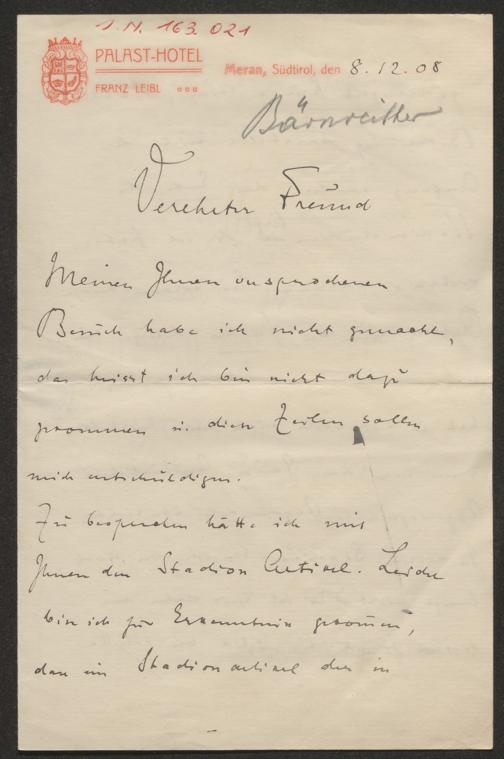 I. N. 163.021
PALAST-HOTEL
FRANZ LEIBL
Meran, Südtirol, den 8. 12. 08
Bärnreither
Verehrter Freund
Meinen Ihnen versprochenen
Besuch habe ich nicht gemacht,
das heisst ich bin nicht dazu
gekommen u. diese Zeilen sollen
mich entschuldigen.
Zu besprechen hätte ich mit
Ihnen den Stadion Artikel. Leider
bin ich zur Erkenntnis gekommen,
dass ein Stadionartikel der in